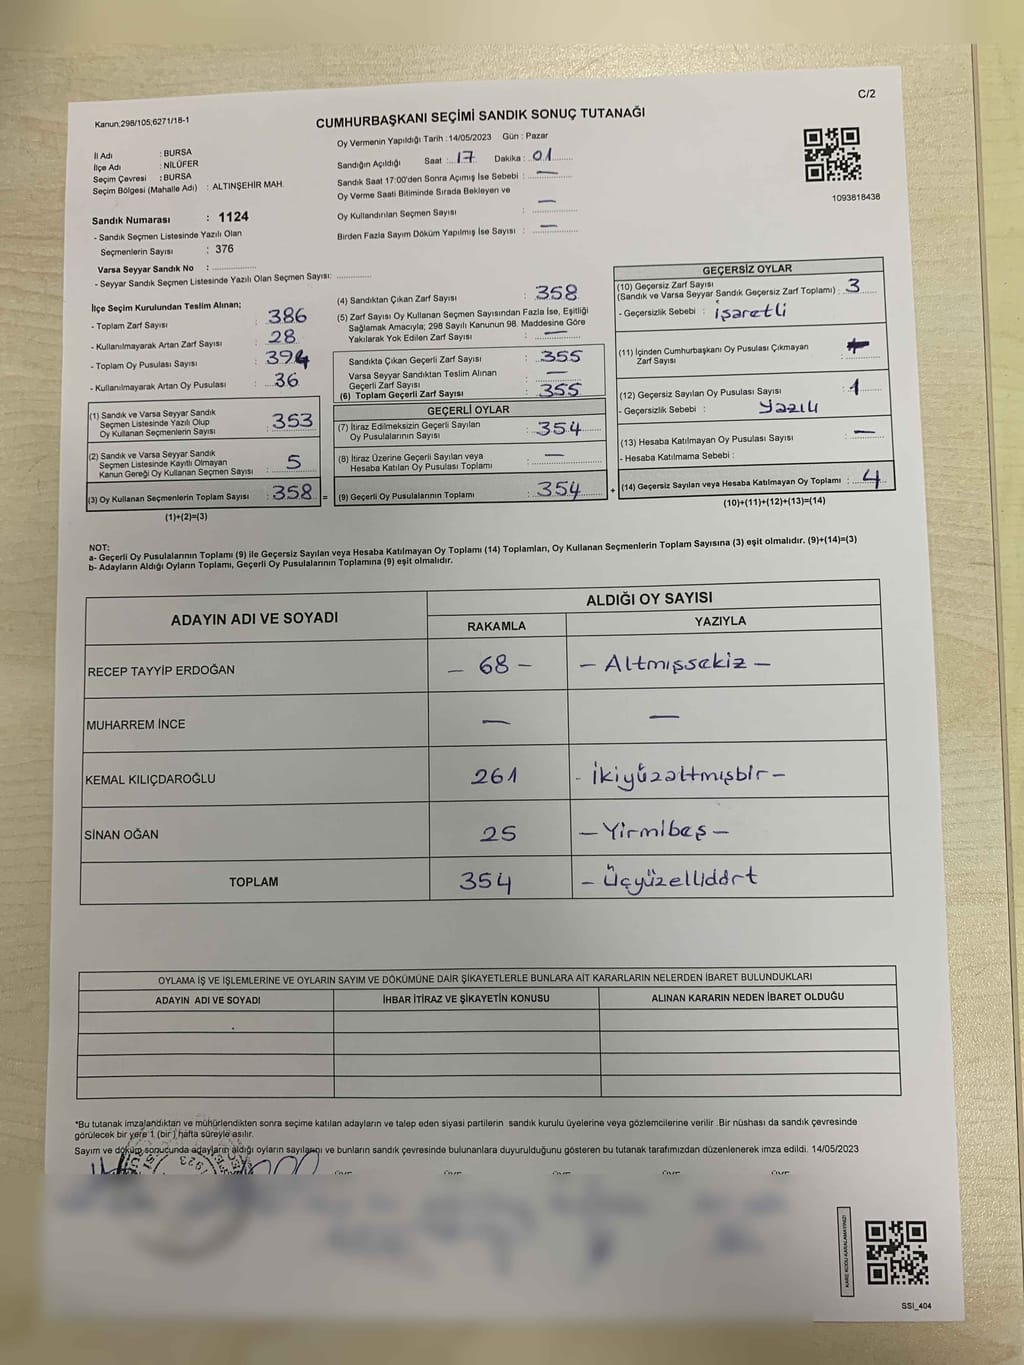 C/2
Kanun;298/105;6271/18-1
CUMHURBAŞKANI SEÇİMİ SANDIK SONUÇ TUTANAĞI
İl Adı : BURSA
İlçe Adı : NİLÜFER
Seçim Çevresi : BURSA
Seçim Bölgesi (Mahalle Adı) : ALTINŞEHİR MAH.
Sandık Numarası : 1124
- Sandık Seçmen Listesinde Yazılı Olan
Seçmenlerin Sayısı : 376
Varsa Seyyar Sandık No : ............
- Seyyar Sandık Seçmen Listesinde Yazılı Olan Seçmen Sayısı: ............
Oy Vermenin Yapıldığı Tarih :14/05/2023 Gün : Pazar
Sandığın Açıldığı Saat : 17 Dakika : 01
Sandık Saat 17:00'den Sonra Açımış İse Sebebi : —
Oy Verme Saati Bitiminde Sırada Bekleyen ve
Oy Kullandırılan Seçmen Sayısı : —
Birden Fazla Sayım Döküm Yapılmış İse Sayısı : —
1093818438
İlçe Seçim Kurulundan Teslim Alınan;
- Toplam Zarf Sayısı : 386
- Kullanılmayarak Artan Zarf Sayısı : 28
- Toplam Oy Pusulası Sayısı : 394
- Kullanılmayarak Artan Oy Pusulası : 36
(1) Sandık ve Varsa Seyyar Sandık
Seçmen Listesinde Yazılı Olup
Oy Kullanan Seçmenlerin Sayısı : 353
(2) Sandık ve Varsa Seyyar Sandık
Seçmen Listesinde Kayıtlı Olmayan
Kanun Gereği Oy Kullanan Seçmen Sayısı : 5
(3) Oy Kullanan Seçmenlerin Toplam Sayısı : 358 =
(1)+(2)=(3)
(4) Sandıktan Çıkan Zarf Sayısı : 358
(5) Zarf Sayısı Oy Kullanan Seçmen Sayısından Fazla İse, Eşitliği
Sağlamak Amacıyla; 298 Sayılı Kanunun 98. Maddesine Göre
Yakılarak Yok Edilen Zarf Sayısı : —
Sandıkta Çıkan Geçerli Zarf Sayısı : 355
Varsa Seyyar Sandıktan Teslim Alınan
Geçerli Zarf Sayısı : —
(6) Toplam Geçerli Zarf Sayısı : 355
GEÇERLİ OYLAR
(7) İtiraz Edilmeksizin Geçerli Sayılan
Oy Pusulalarının Sayısı : 354
(8) İtiraz Üzerine Geçerli Sayılan veya
Hesaba Katılan Oy Pusulası Toplamı : —
(9) Geçerli Oy Pusulalarının Toplamı : 354 +
GEÇERSİZ OYLAR
(10) Geçersiz Zarf Sayısı
(Sandık ve Varsa Seyyar Sandık Geçersiz Zarf Toplamı) : 3
- Geçersizlik Sebebi : işaretli
(11) İçinden Cumhurbaşkanı Oy Pusulası Çıkmayan
Zarf Sayısı :
(12) Geçersiz Sayılan Oy Pusulası Sayısı : 1
- Geçersizlik Sebebi : Yazılı
(13) Hesaba Katılmayan Oy Pusulası Sayısı : —
- Hesaba Katılmama Sebebi :
(14) Geçersiz Sayılan veya Hesaba Katılmayan Oy Toplamı : 4
(10)+(11)+(12)+(13)=(14)
NOT:
a- Geçerli Oy Pusulalarının Toplamı (9) ile Geçersiz Sayılan veya Hesaba Katılmayan Oy Toplamı (14) Toplamları, Oy Kullanan Seçmenlerin Toplam Sayısına (3) eşit olmalıdır. (9)+(14)=(3)
b- Adayların Aldığı Oyların Toplamı, Geçerli Oy Pusulalarının Toplamına (9) eşit olmalıdır.
ADAYIN ADI VE SOYADI ALDIĞI OY SAYISI
RAKAMLA YAZIYLA
RECEP TAYYİP ERDOĞAN — 68 — — Altmışsekiz —
MUHARREM İNCE — —
KEMAL KILIÇDAROĞLU 261 - ikiyüzaltmışbir —
SİNAN OĞAN 25 — Yirmibeş —
TOPLAM 354 — Üçyüzellidört
OYLAMA İŞ VE İŞLEMLERİNE VE OYLARIN SAYIM VE DÖKÜMÜNE DAİR ŞİKAYETLERLE BUNLARA AİT KARARLARIN NELERDEN İBARET BULUNDUKLARI
ADAYIN ADI VE SOYADI İHBAR İTİRAZ VE ŞİKAYETİN KONUSU ALINAN KARARIN NEDEN İBARET OLDUĞU
*Bu tutanak imzalandıktan ve mühürlendikten sonra seçime katılan adayların ve talep eden siyasi partilerin sandık kurulu üyelerine veya gözlemcilerine verilir .Bir nüshası da sandık çevresinde
görülecek bir yere 1 (bir ) hafta süreyle asılır.
Sayım ve döküm sonucunda adayların aldığı oyların sayılarını ve bunların sandık çevresinde bulunanlara duyurulduğunu gösteren bu tutanak tarafımızdan düzenlenerek imza edildi. 14/05/2023
KARE KODU KARALAMAYINIZ!
SSI_404